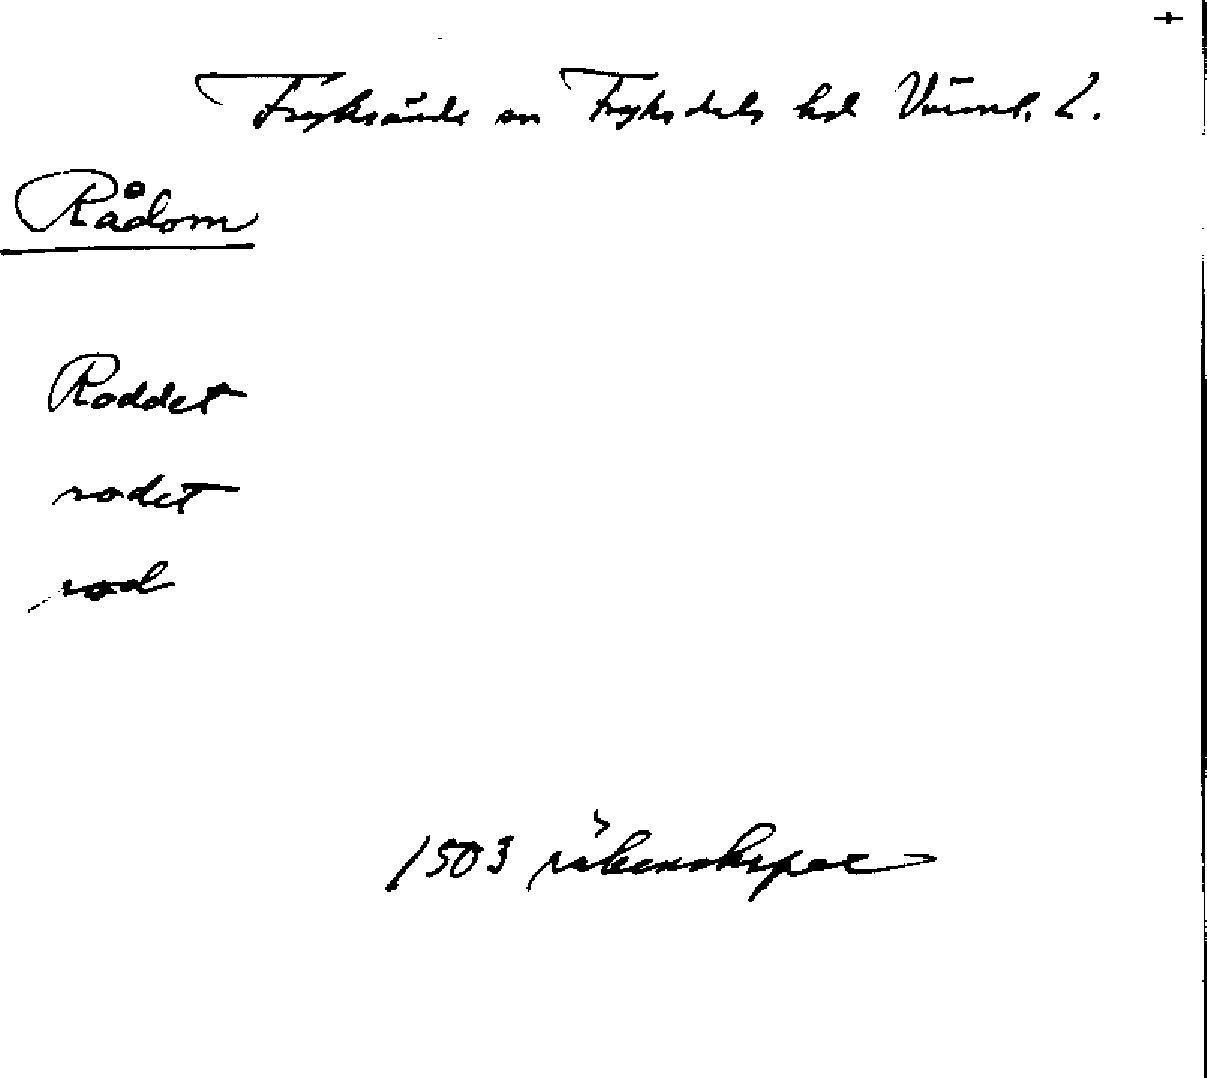 Fryksände sn Fryksdals hd Värml. L.
Rådom
Roddet
rodet
rod
1503 räkenskaper